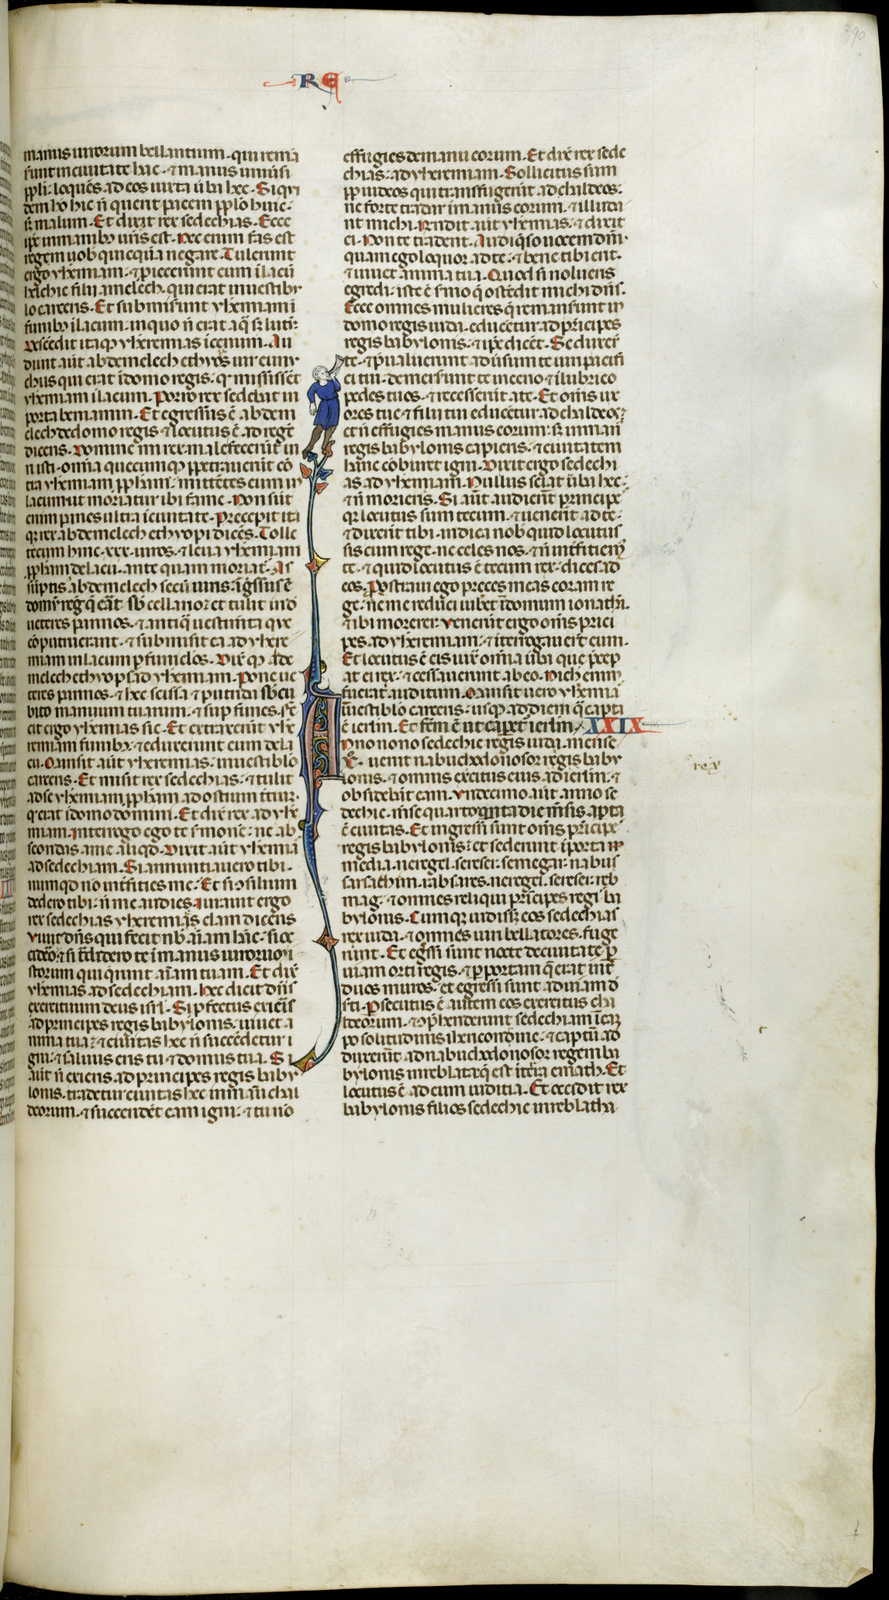 RE
manus uirorum bellantium. qui rema
serunt in ciuitate hac. et manus uniuersi
ppli. loquens ad eos iuxta uerba hec. Siqui
dem homo hic non querit pacem populo huic.
sed malum. Et dixit rex sedechias. Ecce
ipse in manibus uestris est. Nec enim fas est
regem uobis quicquam negare. Tulerunt
ergo yheremiam. et proiecerunt eum in lacum
helchie filii amelech. qui erat in uestibu
lo carceris. Et submiserunt yheremiam
funibus in lacum. in quo non erat aqua sed lutum.
Descendit itaque yheremias in cenum. Au
diuit autem abdemelech ethyops uir eunu
chus qui erat in domo regis. quod misissent
yheremiam in lacum. Porro rex sedebat in
porta beniamin. Et egressus est abdem
elech de domo regis et locutus est ad regem
dicens. Domine mi rex malefecerunt
uiri isti. omnia quecumque perpetrauerunt con
tra yheremiam prophetam. mittentes eum in
lacum ut moriatur ibi fame. Non sunt
enim panes ultra in ciuitate. Precepit ita
que rex abdemelech ethyopi dicens. Tolle
tecum hinc .xxx. uiros. et leua yheremiam
prophetam de lacu. ante quam moriatur. As
sumptis abdemelech secum uiris. ingressus est
domum regis que erat sub cellario. et tulit inde
ueteres pannos. et antiqua uestimenta que
computruerant. et submisit ea ad yhere
miam in lacum per funiculos. Dixitque abde
melech ethyops ad yheremiam. Pone ue
teres pannos. et hec scissa et putrida sub cu
bito manuum tuarum. et super funes. Fe
cit ergo yheremias sic. Et extraxerunt yhe
remiam funibus. et eduxerunt eum de la
cu. Mansit autem yheremias. in uestibulo
carceris. Et misit rex sedechias. et tulit
ad se yheremiam prophetam ad ostium tercium.
quod erat in domo domini. Et dixit rex ad yhe
miam. Interrogo ego te sermonem. ne ab
scondas a me aliquid. Dixit autem yheremia
ad sedechiam. Si annuntiauero tibi.
numquid non interficies me. Et si consilium
dedero tibi. non me audies. Iurauit ergo
rex sedechias yheremias clam dicens
Viuit dominus qui fecit nobis animam hanc. si occi
dero te. et si tradidero te in manus uirorum
istorum qui querunt animam tuam. Et dixit
yheremias ad sedechiam. Hec dicit dominus
exercituum deus israel. Si profectus exieris
ad principes regis babylonis. uiuet a
nima tua. et ciuitas hec non succendetur i
gni. et saluus eris tu et domus tua. Si
autem non exieris ad principes regis baby
lonis. tradetur ciuitas hec in manu chal
deorum. et succendent eam igni. et tu non
effugies de manu eorum. Et dixit rex sede
chias. ad yheremiam. Sollicitus sum
propter iudeos qui transfugerunt ad chaldeos.
ne forte tradar in manus eorum. et illuda
nt michi. Respondit autem yheremias. et dixit
ei. Non te tradent. Audi queso uocem domini.
quam ego loquor ad te. et bene tibi erit.
et uiuet anima tua. Quod si nolueris
egredi. iste est sermo quem ostendit michi dominus.
Ecce omnes mulieres que remanserunt in
domo regis iuda. educentur ad principes
regis babylonis. et ipse dicent. Seduxerunt
te. et preualuerunt aduersum te uiri pacifi
ci tui. demerserunt te in ceno. et in lubrico
pedes tuos. et recesserunt a te. Et omnes ux
ores tue et filii tui educentur ad chaldeos.
et non effugies manus eorum. sed in manu
regis babylonis capieris. et ciuitatem
hanc comburet igni. Dixit ergo sedechi
as ad yheremiam. Nullus sciat uerba hec.
et non morieris. Si autem audierint principes
quia locutus sum tecum. et uenerint ad te.
et dixerint tibi. indica nobis quid locutus
sis cum rege. ne celes nos. et non interficiemus
te. et quid locutus est tecum rex. dices ad
eos. Prostraui ego preces meas coram re
ge. ne me reduci iuberet in domum ionathan.
et ibi morerer. Venerunt ergo omnes princi
pes ad yheremiam. et interrogauerunt eum.
Et locutus est eis iuxta omnia uerba que precep
at ei rex. et cessauerunt ab eo. Nichil enim
fuerat auditum. Mansit uero yheremia
in uestibulo carceris. usque ad diem quo capta
est ierusalem. Et factum est ut caperetur ierusalem. XXIX
Anno nono sedechie regis iuda. mense
.x. uenit nabuchodonosor regis baby
lonis. et omnis exercitus eius ad ierusalem. et
obsidebant eam. Undecimo autem anno se
dechie. mense quarto quinta die mensis. aperta
est ciuitas. Et ingressi sunt omnes principes
regis babylonis. et sederunt in porta
media. neregel. sereser. semegar. nabus
sarsachim. rabsares. neregel. sereser. reb
mag. et omnes reliqui principes regis ba
bylonis. Cumque uidisset eos sedechias
rex iuda. et omnes uiri bellatores. fuge
runt. Et egressi sunt nocte de ciuitate per
uiam orti regis. et per portam que erat inter
duos muros. et egressi sunt ad uiam de
serti. Persecutus est autem eos exercitus cha
ldeorum. et comprehenderunt sedechiam in cam
po solitudinis iherichontine. et captum ad
duxerunt ad nabuchodonosor regem ba
bylonis in reblata que est in terra emath. Et
locutus est ad eum iudicia. Et occidit rex
babylonis filios sedechie in reblatha
rex